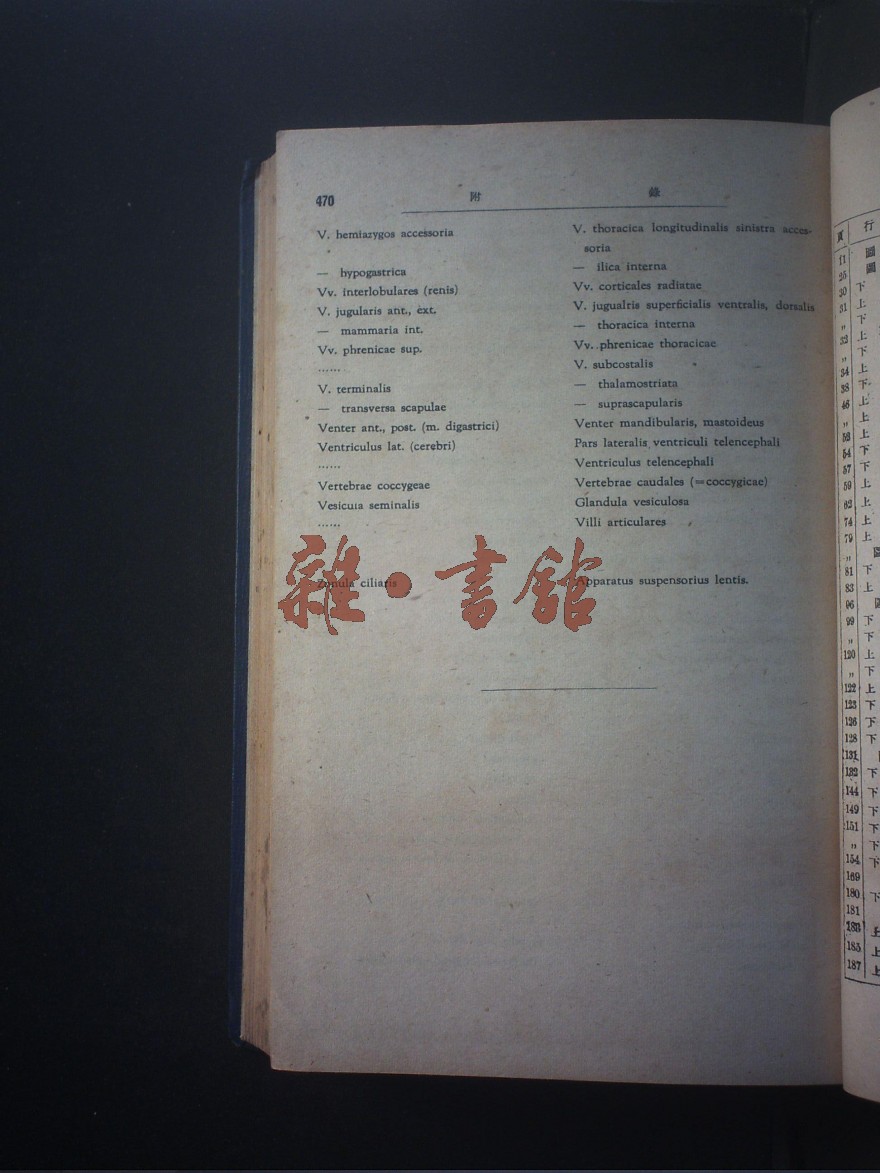 470 附 錄
V. hemiazygos accessoria V. thoracica longitudinalis sinistra acces-
soria
— hypogastrica — ilica interna
Vv. interlobulares (renis) Vv. corticales radiatae
V. jugularis ant., ext. V. jugualris superficialis ventralis, dorsalis
— mammaria int. — thoracica interna
Vv. phrenicae sup. Vv. phrenicae thoracicae
...... V. subcostalis
V. terminalis — thalamostriata
— transversa scapulae — suprascapularis
Venter ant., post. (m. digastrici) Venter mandibularis, mastoideus
Ventriculus lat. (cerebri) Pars lateralis ventriculi telencephali
...... Ventriculus telencephali
Vertebrae coccygeae Vertebrae caudales (=coccygicae)
Vesicula seminalis Glandula vesiculosa
...... Villi articulares
Zonula ciliaris Apparatus suspensorius lentis.
雜·書館
頁 行
11 圖
25 圖
30 下
31 上
„ 下
32 上
„ 下
34 上
38 下
46 上
„ 上
52 上
54 下
57 下
59 上
62 上
74 上
79 上
„
81 下
83 上
96
99 下
„ 下
120 上
„ 下
122 上
123 下
126 下
128 下
131
132 下
144 下
149 下
151 下
„ 下
154 下
169
180 下
181
183 上
185 上
187 上